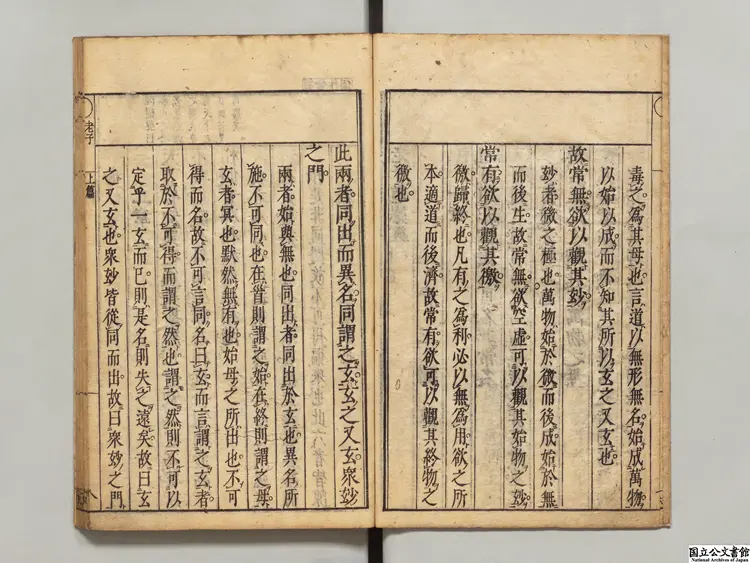 毒之爲其母也言道以無形無名始成萬物
以始以成而不知其所以玄之又玄也
故常無欲以觀其妙
妙者微之極也萬物始於微而後成始於無
而後生故常無欲空虛可以觀其始物之妙
常有欲以觀其徼
徼歸終也凡有之爲利必以無爲用欲之所
本適道而後濟故常有欲可以觀其終物之
徼也
此兩者同出而異名同謂之玄玄之又玄衆妙
之門
兩者始與無也同出者同出於玄也異名所
施不可同也在首則謂之始在終則謂之母
玄者冥也默然無有也始母之所出也不可
得而名故不可言同名曰玄而言謂之玄者
取於不可得而謂之然也謂之然則不可以
定乎一玄而已則是名則失之遠矣故曰玄
之又玄也衆妙皆從同而出故曰衆妙之門
老子
上篇
国立公文書館
National Archives of Japan